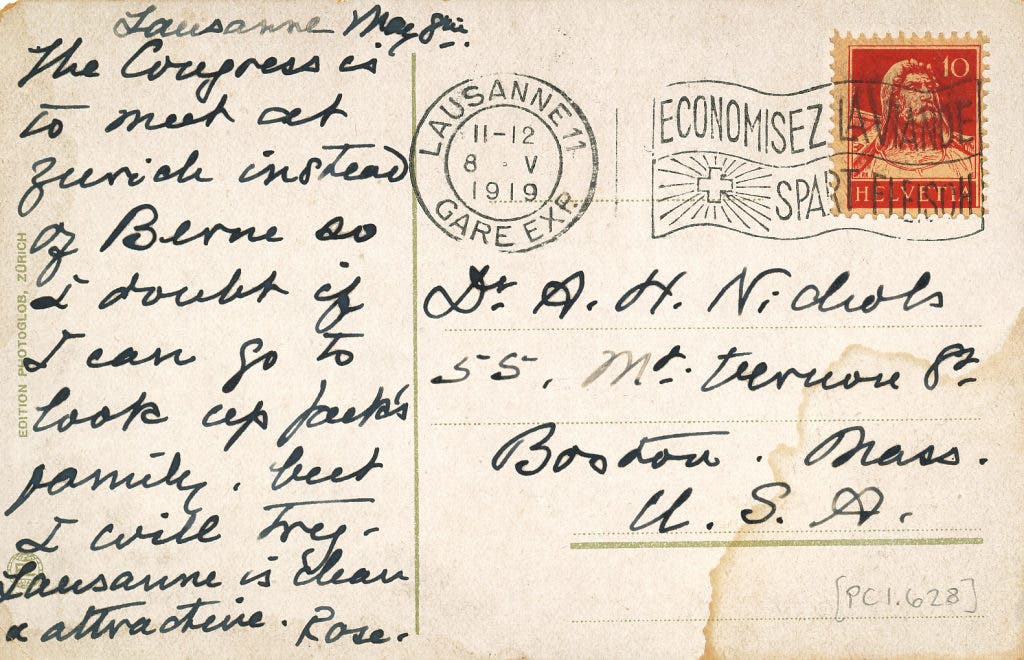 Lausanne May 8th.
The Congress is
to meet at
Zurich instead
of Berne so
I doubt if
I can go to
look up Jack's
family. but
I will try-
Lausanne is clean
& attractive. Rose.
EDITION PHOTOGLOB, ZÜRICH
LAUSANNE 11
11-12
8 · V
1919
GARE EXP.
ECONOMISEZ LA VIANDE
SPART FLEISCH
10
HELVETIA
Dr. A. H. Nichols
55, Mt. Vernon St
Boston. Mass.
U. S. A.
[PC1.628]